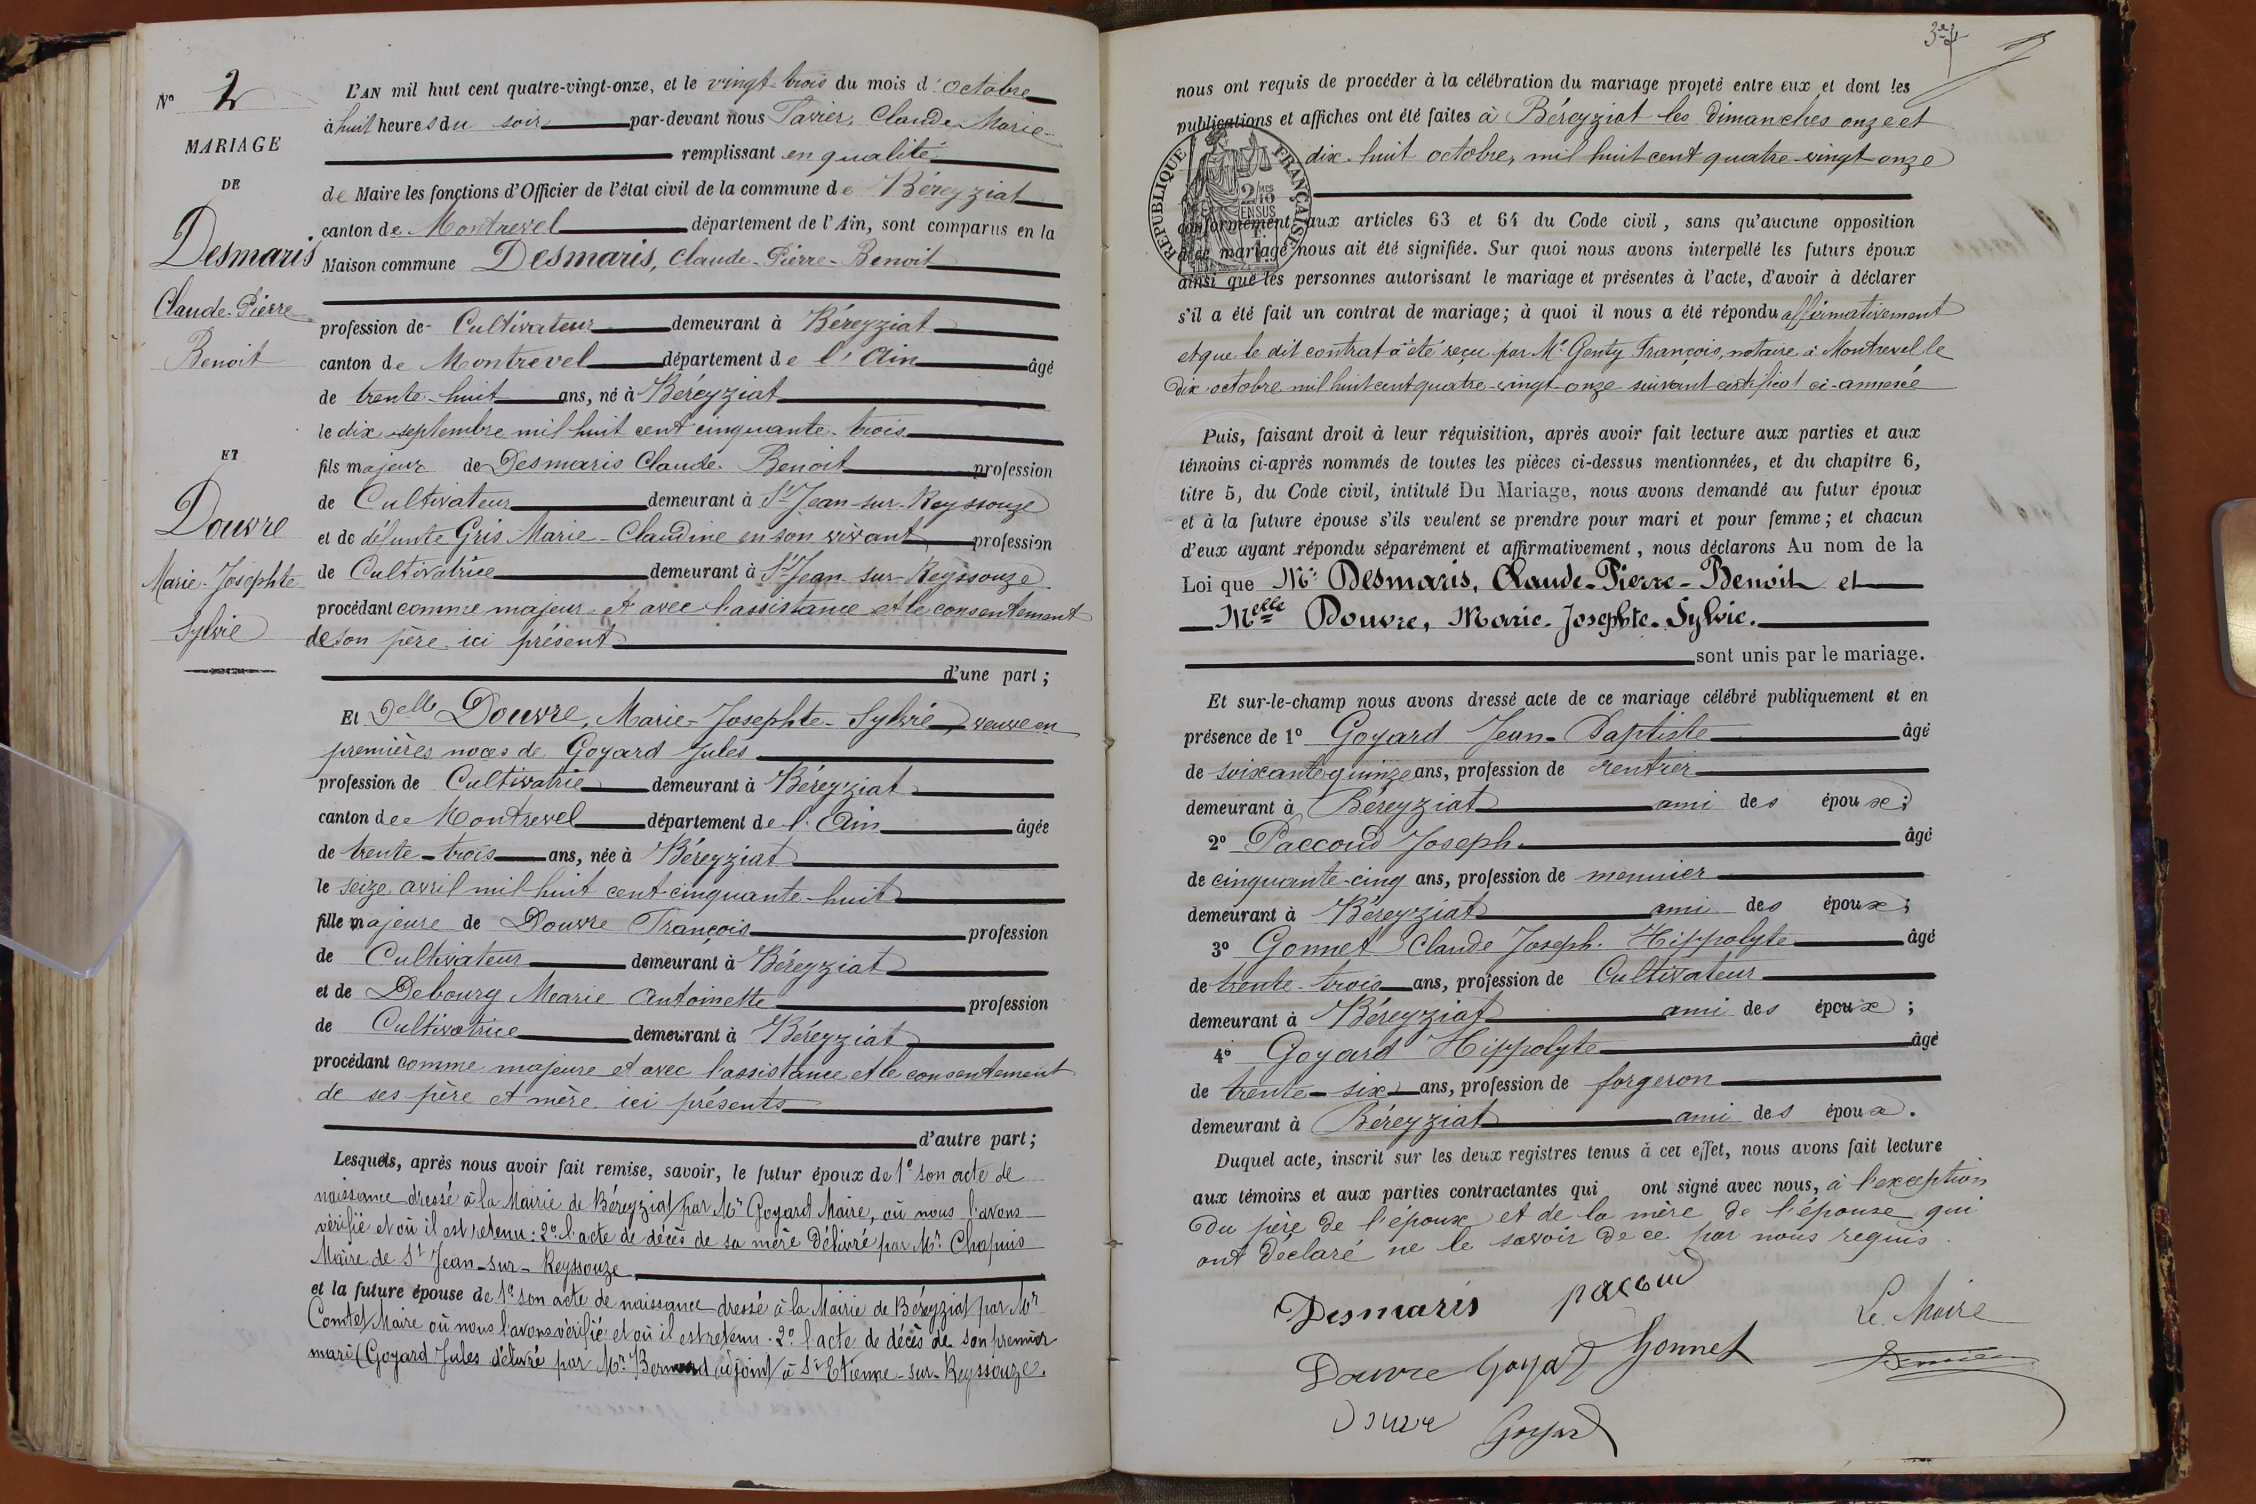 N° 2
MARIAGE
DE
Desmaris
Claude-Pierre
Benoit
ET
Douvre
Marie-Josephte
Sylvie
L'AN mil huit cent quatre-vingt-onze, et le vingt-trois du mois d'octobre
à huit heures du soir par-devant nous Claude Marie
remplissant en qualité
de Maire les fonctions d'Officier de l'état civil de la commune de Béreyziat
canton de Montrevel département de l'Ain, sont comparus en la
Maison commune Desmaris, Claude-Pierre-Benoit
profession de Cultivateur demeurant à Béreyziat
canton de Montrevel département de l'Ain âgé
de trente-huit ans, né à Béreyziat
le dix septembre mil huit cent cinquante-trois
fils majeur de Desmaris Claude Benoit profession
de Cultivateur demeurant à St Jean-sur-Reyssouze
et de défunte Gris Marie-Claudine en son vivant profession
de Cultivatrice demeurant à St Jean-sur-Reyssouze
procédant comme majeur et avec l'assistance et le consentement
de son père ici présent
d'une part ;
Et Delle Douvre, Marie-Josephte-Sylvie, veuve en
premières noces de Goyard Jules
profession de Cultivatrice demeurant à Béreyziat
canton de Montrevel département de l'Ain âgée
de trente-trois ans, née à Béreyziat
le seize avril mil huit cent cinquante-huit
fille majeure de Douvre François profession
de Cultivateur demeurant à Béreyziat
et de Debourg Marie Antoinette profession
de Cultivatrice demeurant à Béreyziat
procédant comme majeure et avec l'assistance et le consentement
de ses père et mère ici présents
d'autre part ;
Lesquels, après nous avoir fait remise, savoir, le futur époux de 1° son acte de
naissance dressé à la Mairie de Béreyziat par Mr Goyard Maire, où nous l'avons
vérifié et où il est retenu : 2° l'acte de décès de sa mère délivré par Mr Chapuis
Maire de St Jean-sur-Reyssouze
et la future épouse de 1° son acte de naissance dressé à la Mairie de Béreyziat par Mr
Comtet Maire où nous l'avons vérifié et où il est retenu. 2° l'acte de décès de son premier
mari (Goyard Jules délivré par Mr adjoint à St Etienne-sur-Reyssouze.
nous ont requis de procéder à la célébration du mariage projeté entre eux et dont les
publications et affiches ont été faites à Béreyziat les dimanches onze et
dix-huit octobre, mil huit cent quatre-vingt-onze
RÉPUBLIQUE FRANÇAISE
conformément aux articles 63 et 64 du Code civil, sans qu'aucune opposition
à ce mariage nous ait été signifiée. Sur quoi nous avons interpellé les futurs époux
ainsi que les personnes autorisant le mariage et présentes à l'acte, d'avoir à déclarer
s'il a été fait un contrat de mariage ; à quoi il nous a été répondu affirmativement
et que le dit contrat a été reçu par Me Genty François, notaire à Montrevel le
dix octobre mil huit cent quatre-vingt-onze suivant certificat ci-annexé
Puis, faisant droit à leur réquisition, après avoir fait lecture aux parties et aux
témoins ci-après nommés de toutes les pièces ci-dessus mentionnées, et du chapitre 6,
titre 5, du Code civil, intitulé Du Mariage, nous avons demandé au futur époux
et à la future épouse s'ils veulent se prendre pour mari et pour femme ; et chacun
d'eux ayant répondu séparément et affirmativement, nous déclarons Au nom de la
Loi que Mr Desmaris, Claude-Pierre-Benoit et
Melle Douvre, Marie-Josephte-Sylvie.
sont unis par le mariage.
Et sur-le-champ nous avons dressé acte de ce mariage célébré publiquement et en
présence de 1° Goyard Jean-Baptiste âgé
de soixante quinze ans, profession de rentier
demeurant à Béreyziat ami des époux ;
2° Paccoud Joseph. âgé
de cinquante-cinq ans, profession de meunier
demeurant à Béreyziat ami des époux ;
3° Gonnet Claude Joseph Hippolyte âgé
de trente-trois ans, profession de Cultivateur
demeurant à Béreyziat ami des époux ;
4° Goyard Hippolyte âgé
de trente-six ans, profession de forgeron
demeurant à Béreyziat ami des époux.
Duquel acte, inscrit sur les deux registres tenus à cet effet, nous avons fait lecture
aux témoins et aux parties contractantes qui ont signé avec nous, à l'exception
du père de l'époux et de la mère de l'épouse qui
ont déclaré ne le savoir de ce par nous requis.
Desmaris paccoud
Le Maire
Douvre Goyard Gonnet
Douvre Goyard